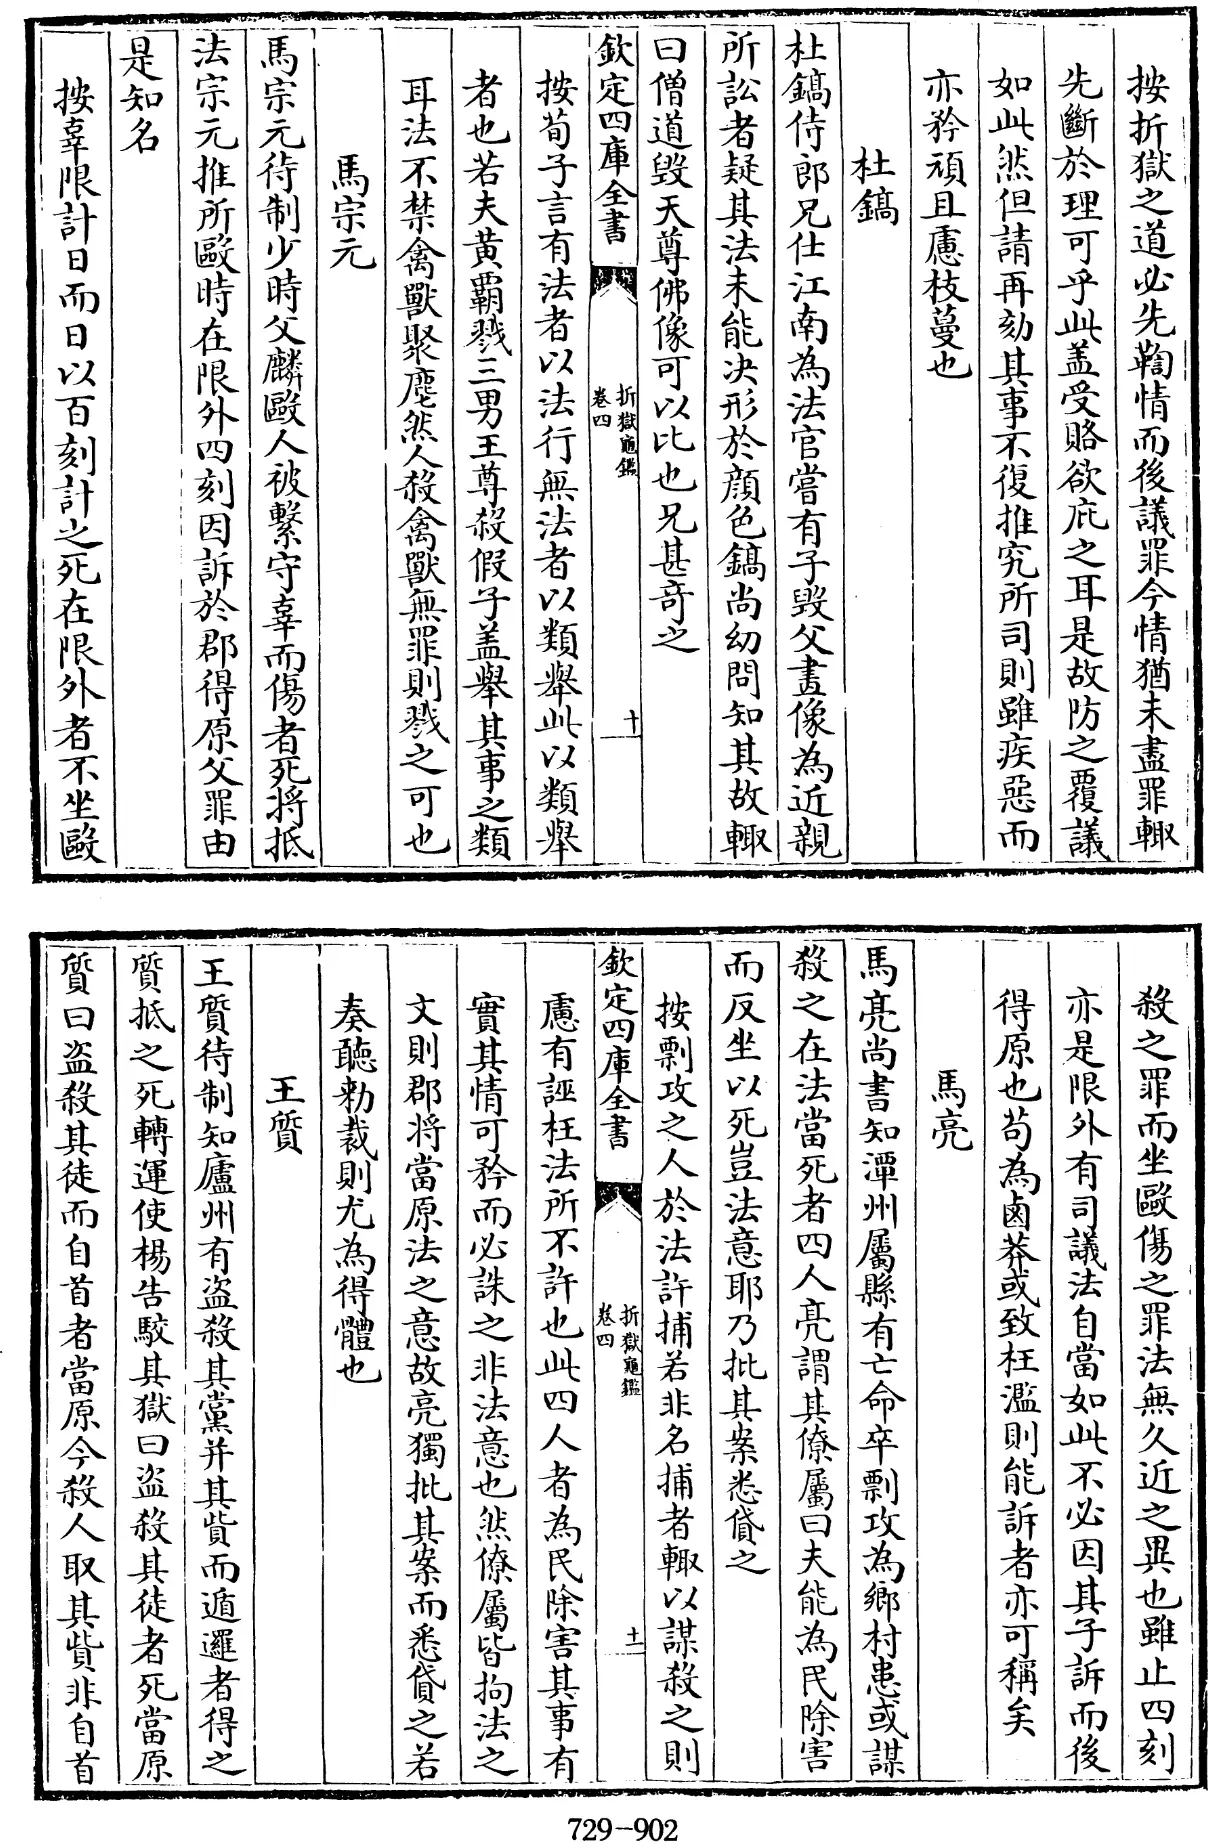 按折獄之道必先鞫情而後議罪今情猶未盡罪輙
先斷於理可乎此盖受賂欲庇之耳是故防之覆議
如此然但請再劾其事不復推究所司則雖疾惡而
亦矜頑且慮枝蔓也
杜鎬
杜鎬侍郎兄仕江南為法官嘗有子毀父畫像為近親
所訟者疑其法未能決形於顔色鎬尚幼問知其故輙
曰僧道毀天尊佛像可以比也兄甚竒之
欽定四庫全書
折獄龜鑑
卷四
十
按荀子言有法者以法行無法者以類舉此以類舉
者也若夫黄霸戮三男王尊殺假子盖舉其事之類
耳法不禁禽獸聚麀然人殺禽獸無罪則戮之可也
馬宗元
馬宗元待制少時父麟毆人被繫守辜而傷者死將抵
法宗元推所毆時在限外四刻因訴於郡得原父罪由
是知名
按辜限計日而日以百刻計之死在限外者不坐毆
殺之罪而坐毆傷之罪法無久近之異也雖止四刻
亦是限外有司議法自當如此不必因其子訴而後
得原也苟為鹵莽或致枉濫則能訴者亦可稱矣
馬亮
馬亮尚書知潭州屬縣有亡命卒剽攻為鄉村患或謀
殺之在法當死者四人亮謂其僚屬曰夫能為民除害
而反坐以死豈法意耶乃批其案悉貸之
按剽攻之人於法許捕若非名捕者輙以謀殺之則
欽定四庫全書
折獄龜鑑
卷四
十一
慮有誣枉法所不許也此四人者為民除害其事有
實其情可矜而必誅之非法意也然僚屬皆拘法之
文則郡将當原法之意故亮獨批其案而悉貸之若
奏聽勅裁則尤為得體也
王質
王質待制知廬州有盗殺其黨并其貲而遁邏者得之
質抵之死轉運使楊告駮其獄曰盗殺其徒者死當原
質曰盗殺其徒而自首者當原今殺人取其貲非自首
729-902